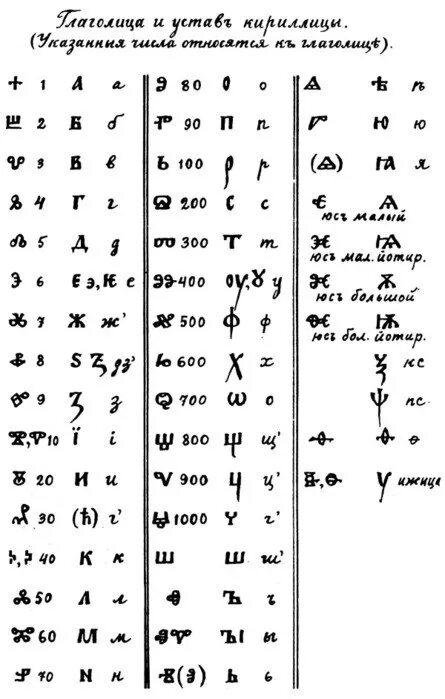 Глаголица и уставъ кириллицы.
(Указанныя числа относятся къ глаголицѣ).
Ⰰ 1 А а
Ⰱ 2 Б б
Ⰲ 3 В в
Ⰳ 4 Г г
Ⰴ 5 Д д
Ⰵ 6 Є э, Ѥ е
Ⰶ 7 Ж ж'
Ⰷ 8 Ѕ Ꙃ дз'
Ⰸ 9 З з
Ⰺ, Ⰹ 10 Ї і
Ⰻ 20 И и
Ⰼ 30 (Ћ) г'
Ⰽ, Ⰽ 40 К к
Ⰾ 50 Л л
Ⰿ 60 М м
Ⱀ 70 N н
Ⱁ 80 О о
Ⱂ 90 П п
Ⱃ 100 Р р
Ⱄ 200 С с
Ⱅ 300 Т т
Ⱆ 400 ОУ, Ꙋ у
Ⱇ 500 Ф ф
Ⱈ 600 Х х
Ⱉ 700 Ѡ о
Ⱋ 800 Щ щ'
Ⱌ 900 Ц ц'
Ⱍ 1000 Ч г'
Ⱎ Ш ш'
Ⱏ Ъ ъ
ⰟⰂ ЪІ ы
Ⱐ(Ⰵ) Ь ь
Ⱑ Ѣ ѣ
Ⱓ Ю ю
(Ⱑ) Ꙗ я
Ⱔ Ѧ
юсъ малый
Ⱗ Ѩ
юсъ мал. йотир.
Ⱘ Ѫ
юсъ большой
Ⱙ Ѭ
юсъ бол. йотир.
Ѯ кс
Ѱ пс
Ⱚ Ѳ ѳ
Ⱛ, Ⱚ Ѵ ижица